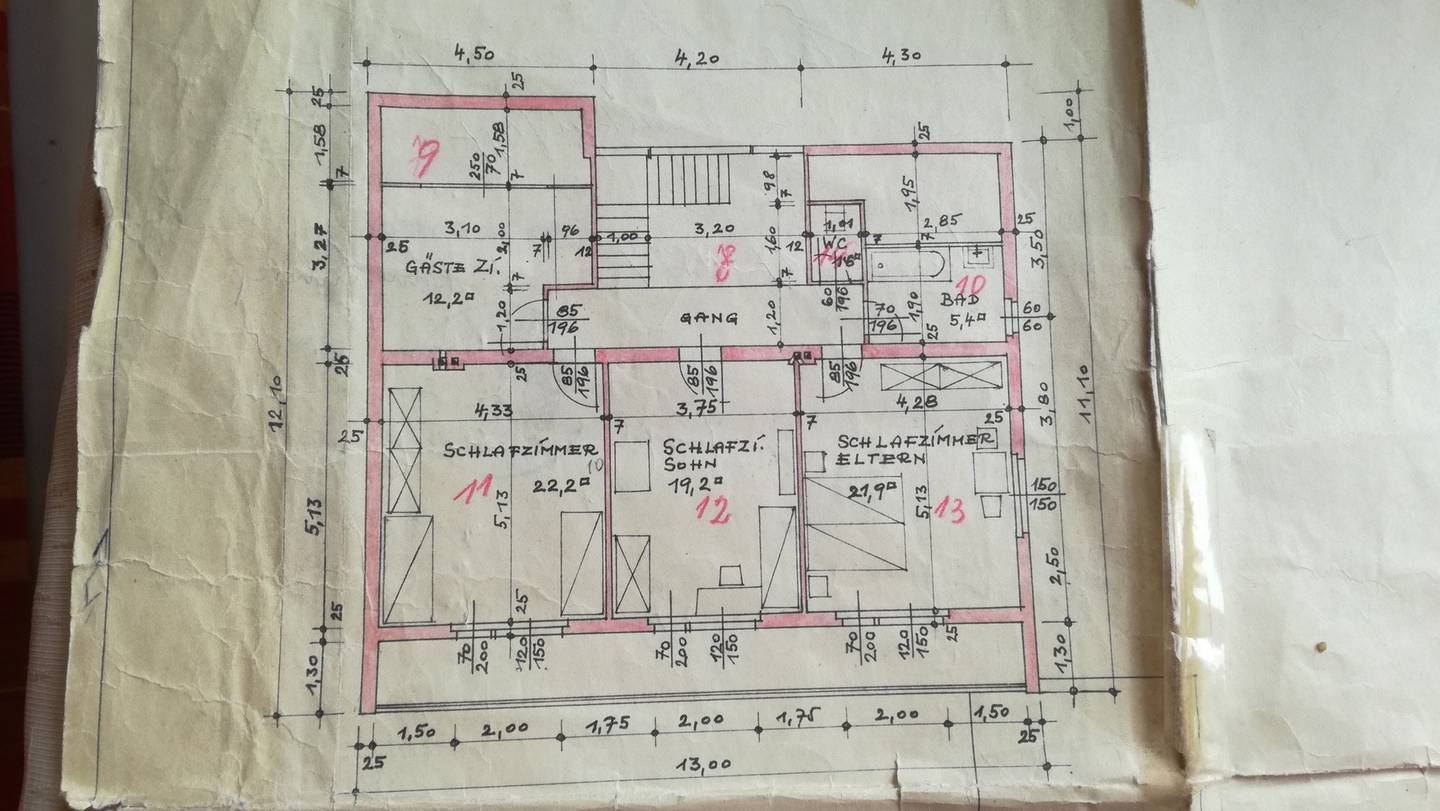 4,50
4,20
4,30
25
25
1,58
7
3,27
25
12,10
5,13
25
1,30
9
1,58
250
70
7
3,10
96
25
7
12
2,00
GÄSTE ZI.
12,2¤
7
1,20
85
196
1,00
3,20
98
7
12
1,60
8
7
GANG
1,20
1,01
WC
7
60
196
25
1,95
2,85
7
25
10
BAD
5,4¤
1,90
70
196
25
60
60
1,00
3,50
3,80
11,10
2,50
1,30
25
4,33
25
85
196
SCHLAFZIMMER
10
22,2¤
11
5,13
25
7
3,75
85
196
SCHLAFZI.
SOHN
19,2¤
12
7
4,28
25
85
196
SCHLAFZIMMER
ELTERN
21,9¤
13
5,13
150
150
70
200
120
150
70
200
120
150
70
200
120
150
25
1,50
2,00
1,75
2,00
1,75
2,00
1,50
25
25
13,00